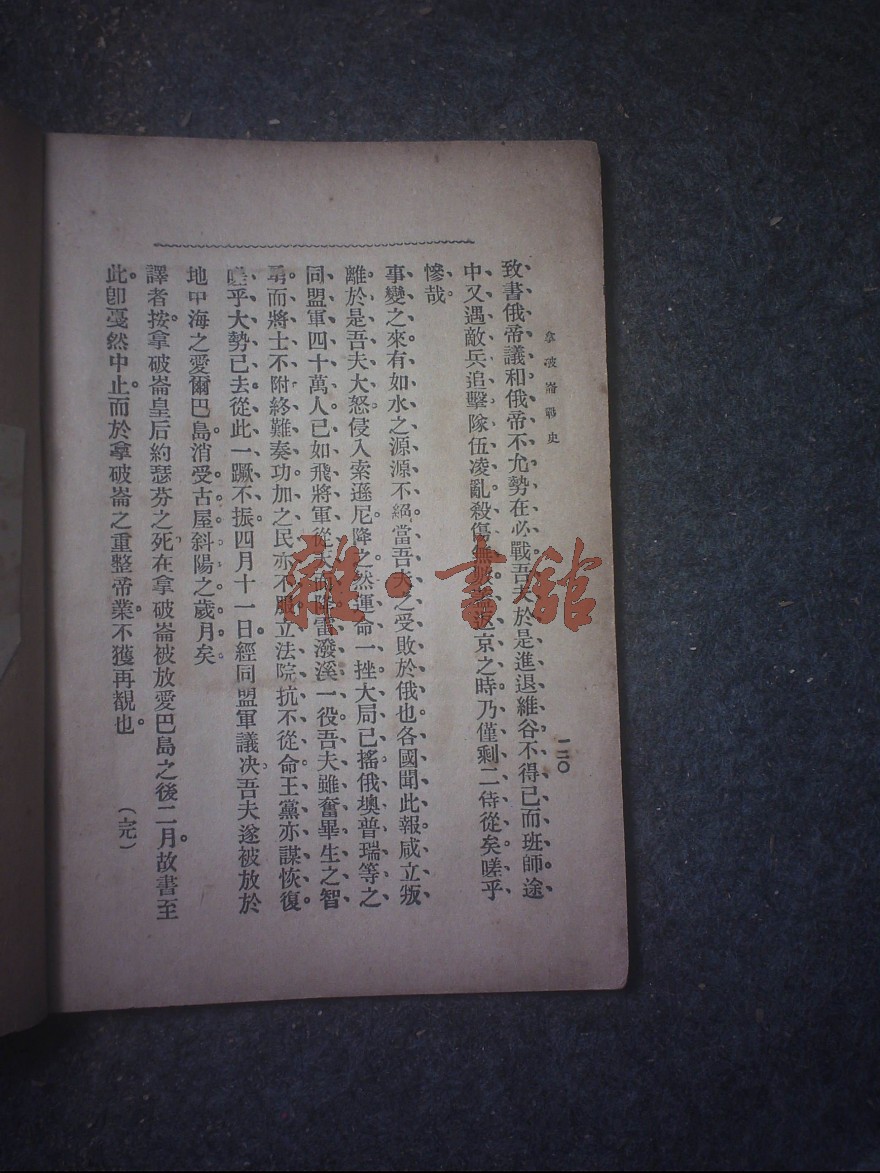 拿破崙戰史
一二〇
致書俄帝議和俄帝不允勢在必戰吾夫於是進退維谷不得已而班師途
中又遇敵兵追擊隊伍凌亂殺傷無返京之時乃僅剩二侍從矣嗟乎
慘哉。
事變之來有如水之源源不絕當吾夫之受敗於俄也各國聞此報咸立叛
離於是吾夫大怒侵入索遜尼降之然運命一挫大局已搖俄墺普瑞等之
同盟軍四十萬人已如飛將軍從天而降雷潑溪一役吾夫雖奮畢生之智
勇而將士不附終難奏功加之民亦不服立法院抗不從命王黨亦謀恢復
嗟乎大勢已去從此一蹶不振。四月十一日經同盟軍議决吾夫遂被放於
地中海之愛爾巴島消受古屋斜陽之歲月矣
譯者按。拿破崙皇后約瑟芬之死在拿破崙被放愛巴島之後二月。故書至
此。卽戞然中止。而於拿破崙之重整帝業。不獲再覩也。
（完）
雜·書館